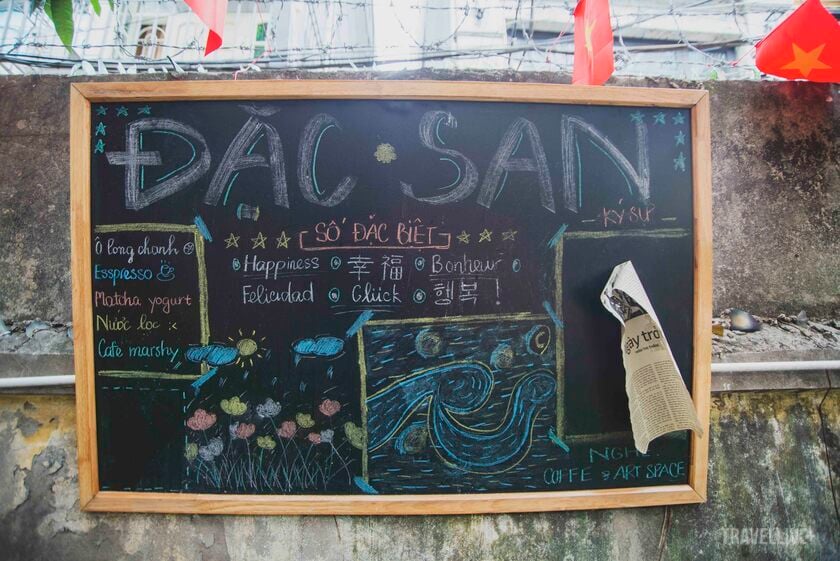 ĐẶC SAN
KÝ SỰ
SỐ ĐẶC BIỆT
Happiness 幸福 Bonheur
Felicidad Glück 행복!
Ô long chanh
Esspresso
Matcha yogurt
Nước lọc
Cafe marshy
gày trở
NGH
COFFE & ART SPACE
TRAVELLIVE+